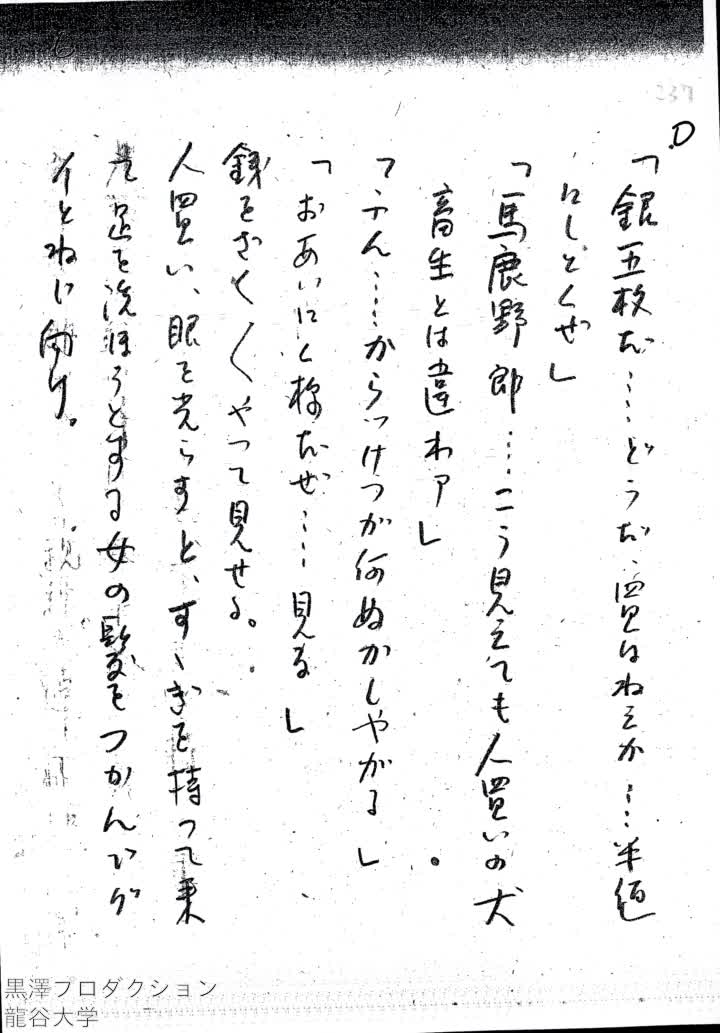 237
D
「銀五枚だ……どうだ、買はねえか……半値
にしとくぜ」
「馬鹿野郎……こう見えても人買いの犬
畜生とは違わァ」
「フン……からっけつが何ぬかしやがる」
「おあいにく様だぜ……見な」
銭をざく〱やって見せる。
人買い、眼を光らすと、すゝぎを持って来
た足を洗ほうとする女の髪をつかんでグ
イとねじ向け。
黒澤プロダクション
龍谷大学